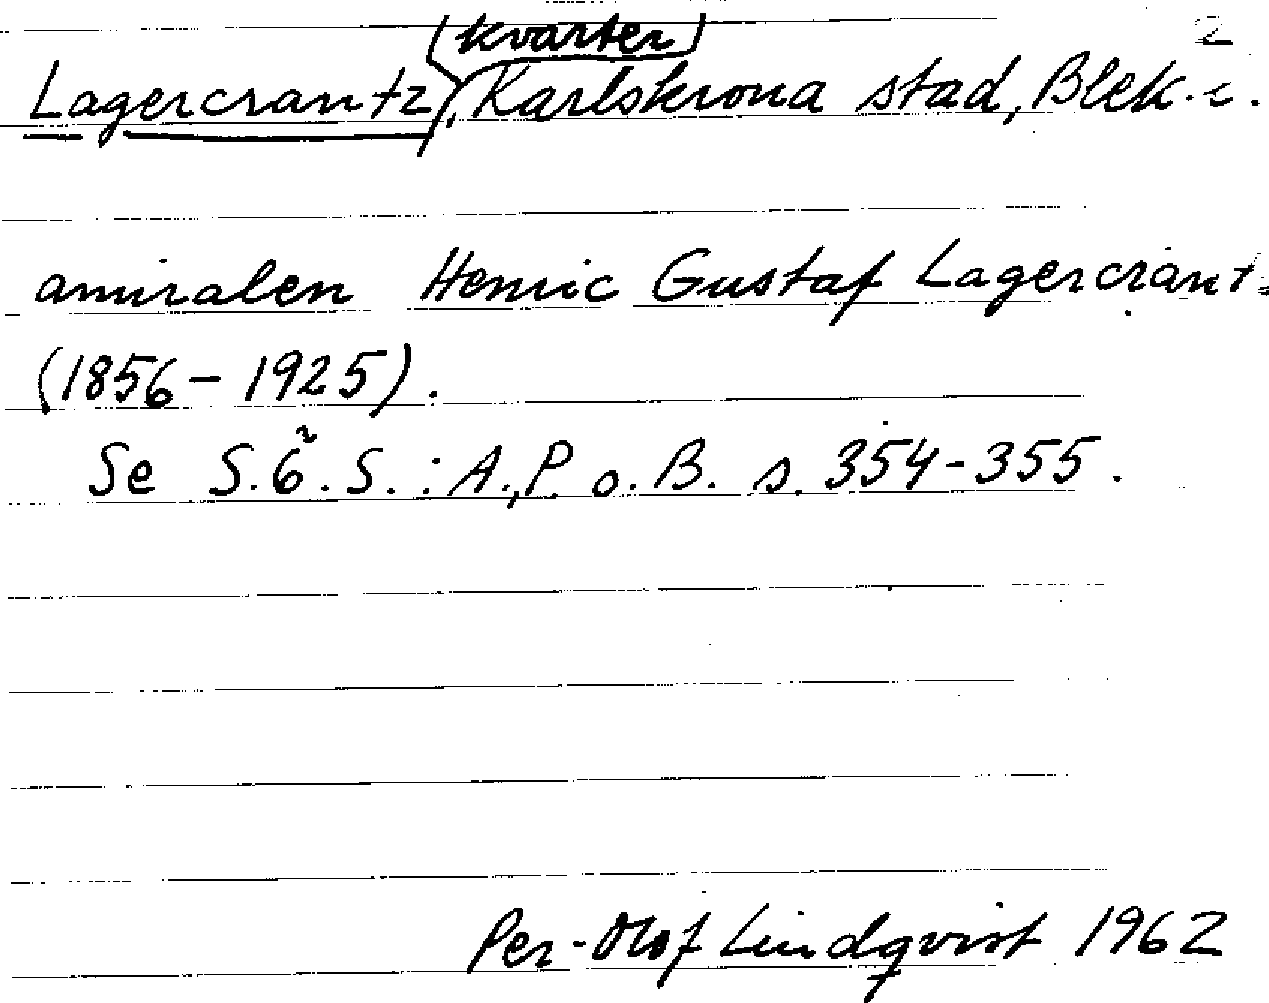 2
Lagercrantz (kvarter), Karlskrona stad, Blek. l.
amiralen Henric Gustaf Lagercrantz
(1856-1925).
Se S.G.S.: A., P. o. B. s. 354-355.
Per-Olof Lindqvist 1962